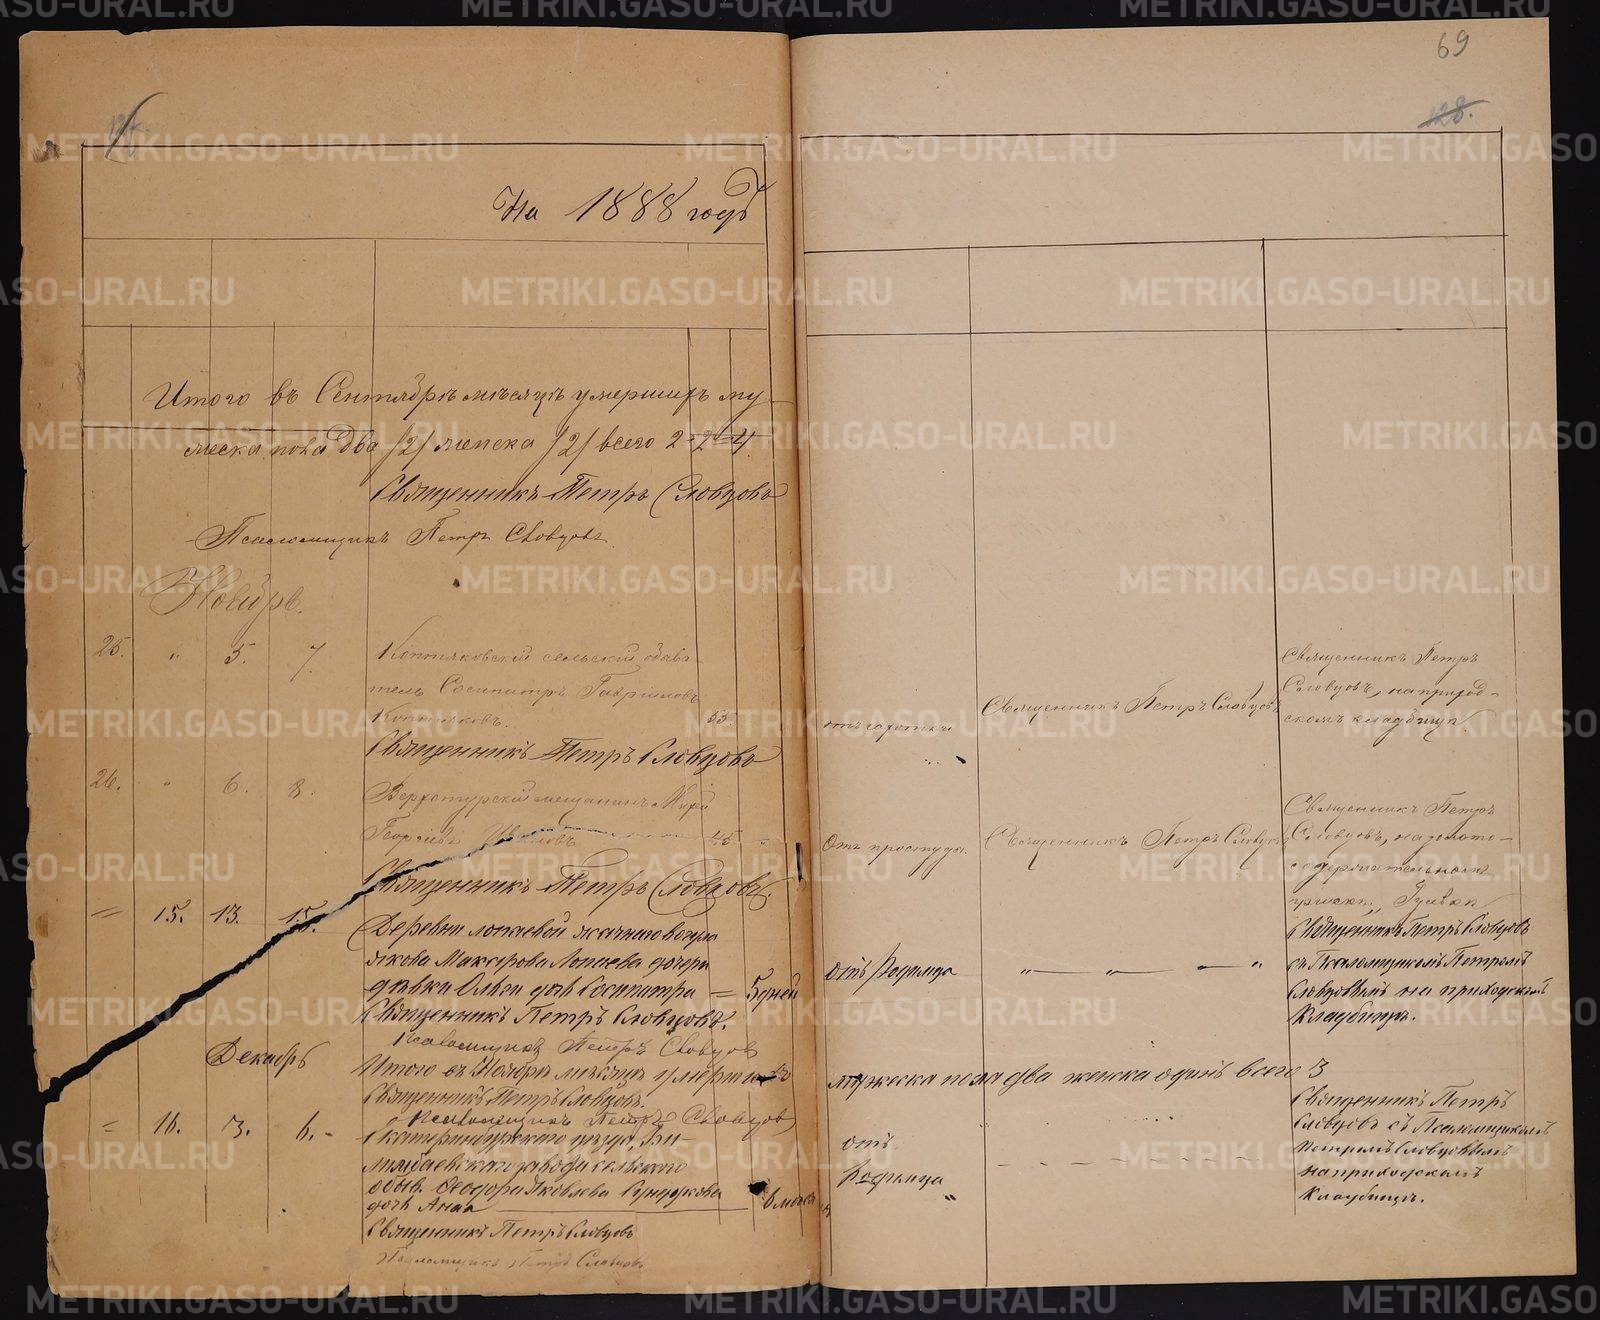 69
128.
На 1888 годъ
Итого въ Сентябрѣ мѣсяцѣ умершихъ му-
жеска пола два /2/ женска /2/ всего 2 - 2 = 4
Священникъ Петръ Словцовъ
Псаломщикъ Петръ Словцовъ
Ноябрь.
25. " 5. 7. Коптяковскій сельскій обыва-
тель Сосипатръ Гавриловъ
Коптяковъ. 55.
отъ чахотки
Священникъ Петръ Словцовъ
Священникъ Петръ
Словцовъ, на приход-
скомъ кладбищѣ.
Священникъ Петръ Словцовъ
26. " 6. 8. Верхотурскій мещанинъ
Георгіевъ 45 "
Отъ простуды.
Священникъ Петръ Словцовъ
Священникъ Петръ
Словцовъ, на золото-
содержательномъ
пріискѣ
Священникъ Петръ Словцовъ.
= 15. 13. 15. Деревни Лопаевой
Макарова Лопаева дочери
дѣвки дочь = 5 дней
отъ Родимца " — " — "
Священникъ Петръ Словцовъ
съ Псаломщикомъ Петромъ
Словцовымъ на приходскомъ
Кладбищѣ.
Священникъ Петръ Словцовъ.
Псаломщикъ Петръ Словцовъ
Декабрь
Итого въ Ноябрѣ мѣсяцѣ умершихъ
мужеска пола два женска одинъ всего 3
Священникъ Петръ Словцовъ.
Псаломщикъ Петръ Словцовъ
= 16. 3. 6. - Екатеринбургскаго уѣзда, Би-
лимбаевскаго завода сельскаго
обыв. Ѳеодора Яковлева
дочь Анна 6 мѣсяцевъ
отъ
Родимца "
Священникъ Петръ
Словцовъ съ Псаломщикомъ
Петромъ Словцовымъ
на приходскомъ
Кладбищѣ.
Священникъ Петръ Словцовъ
Псаломщикъ Петръ Словцовъ
METRIKI.GASO-URAL.RU